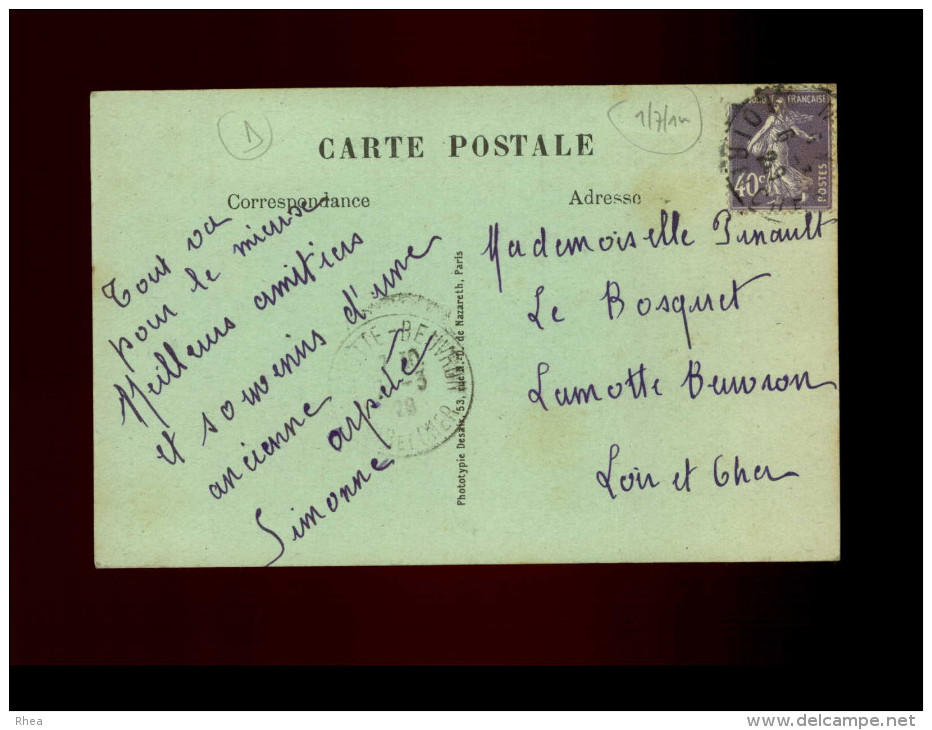 1
1/7/14
CARTE POSTALE
Correspondance
Adresse
FRANÇAISE
40c
POSTES
Tout va
pour le mieux
Meilleurs amitiers
et souvenirs d'une
ancienne
Simonne
Mademoiselle Pinault
Le Bosquet
Lamotte Beuvron
Loir et Cher
TTE-BEUVRON
30
-3
29
ET CHER
Phototypie Desaix, 53, rue N.-D. de Nazareth, Paris
Rhea
www.delcampe.net